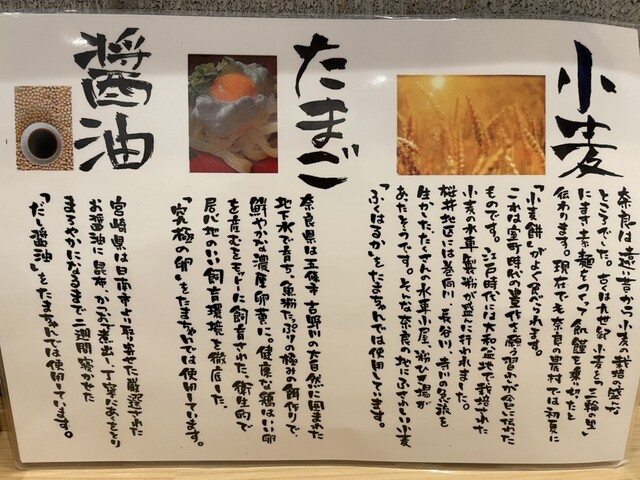 小麦
奈良は遠い昔から小麦の栽培の盛んな
ところでした。古くは九世紀、小麦から「三輪の里」
にます素麺をつくって飢饉を凌いだと
伝わります。現在でも奈良の農村では初夏に
「小麦餅」がよく食べられます。
これは室町時代の豊作を願う習わしが今に伝わった
ものです。江戸時代には大和盆地で栽培された
小麦の水車製粉が盛んに行われました。
桜井地区には巻向川、長谷川、寺川の急流を
生かしたたくさんの水車小屋、粉ひき場が
あったそうです。そんな奈良の地にふさわしい小麦
「ふくはるか」をたまちゃんでは使用しています。
たまご
奈良県は五條市 吉野川の大自然に囲まれた
地下水で育ち、魚粉たっぷりの極みの餌作りで、
鮮やかな濃厚卵黄に。健康な鶏はいい卵
を産むをモットーに飼育された、衛生的で
居心地のいい飼育環境を徹底した
「究極の卵」をたまちゃんでは使用しています。
醤油
宮崎県は日南市より取寄せた厳選された
お醤油に昆布、かつお煮出し、丁寧にあくをとり
まろやかになるまで二週間寝かせた
「だし醤油」をたまちゃんでは使用しています。